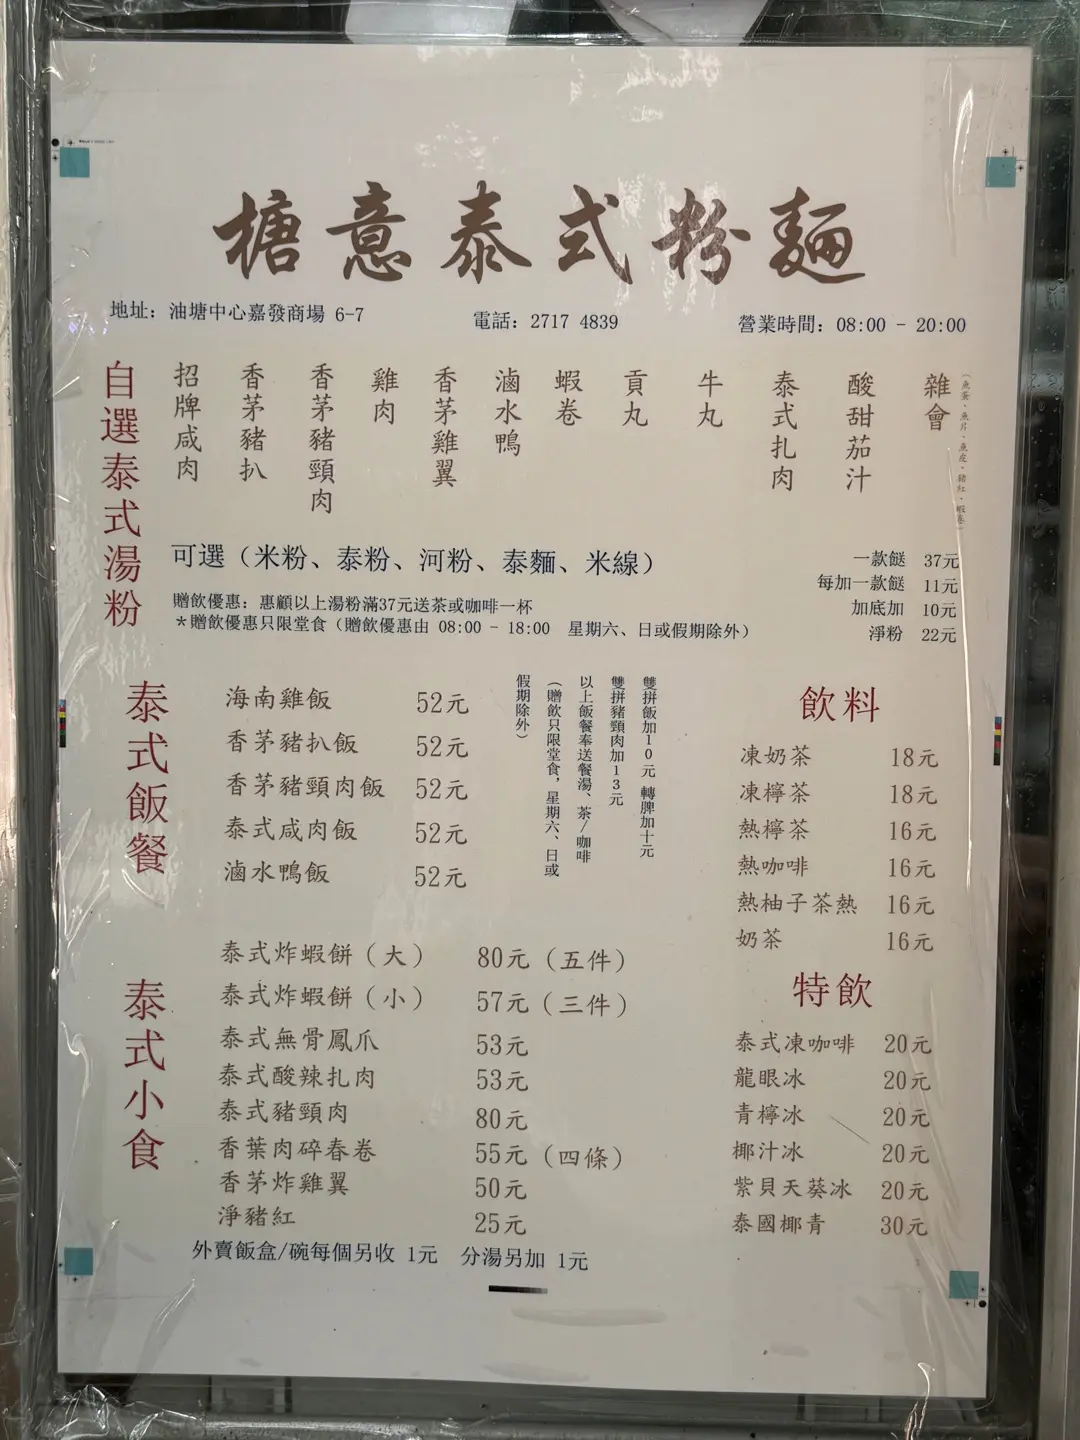 搪意泰式粉麵
地址：油塘中心嘉發商場 6-7
電話：2717 4839
營業時間：08:00 - 20:00
自選泰式湯粉
招牌咸肉
香茅豬扒
香茅豬頸肉
雞肉
香茅雞翼
滷水鴨
蝦卷
貢丸
牛丸
泰式扎肉
酸甜茄汁
雜會
（魚蛋、魚片、魚皮、豬紅、蝦卷）
可選（米粉、泰粉、河粉、泰麵、米線）
一款餸 37元
每加一款餸 11元
加底加 10元
淨粉 22元
贈飲優惠：惠顧以上湯粉滿37元送茶或咖啡一杯
＊贈飲優惠只限堂食（贈飲優惠由 08:00 - 18:00 星期六、日或假期除外）
泰式飯餐
海南雞飯 52元
香茅豬扒飯 52元
香茅豬頸肉飯 52元
泰式咸肉飯 52元
滷水鴨飯 52元
雙拼飯加10元 轉脾加十元
雙拼豬頸肉加13元
以上飯餐奉送餐湯、茶/咖啡
（贈飲只限堂食，星期六、日或
假期除外）
泰式小食
泰式炸蝦餅（大） 80元（五件）
泰式炸蝦餅（小） 57元（三件）
泰式無骨鳳爪 53元
泰式酸辣扎肉 53元
泰式豬頸肉 80元
香葉肉碎春卷 55元（四條）
香茅炸雞翼 50元
淨豬紅 25元
外賣飯盒/碗每個另收 1元 分湯另加 1元
飲料
凍奶茶 18元
凍檸茶 18元
熱檸茶 16元
熱咖啡 16元
熱柚子茶熱 16元
奶茶 16元
特飲
泰式凍咖啡 20元
龍眼冰 20元
青檸冰 20元
椰汁冰 20元
紫貝天葵冰 20元
泰國椰青 30元